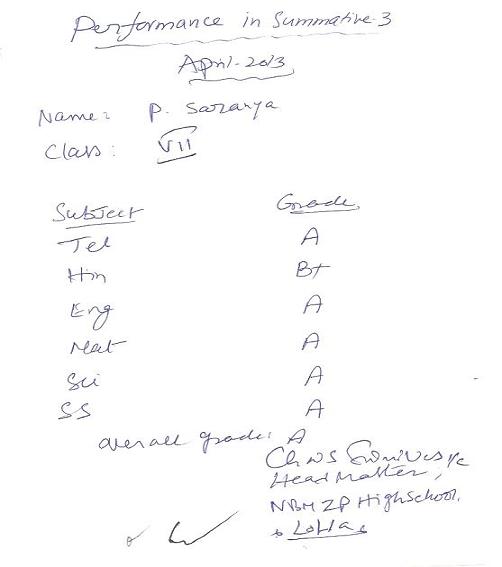 Performance in Summative-3
April-2013
Name: P. Saranya
Class: VII
Subject Grade
Tel A
Hin B+
Eng A
Mat A
Sci A
SS A
overall grade: A
Ch N S
Head Master,
NBM ZP High School,